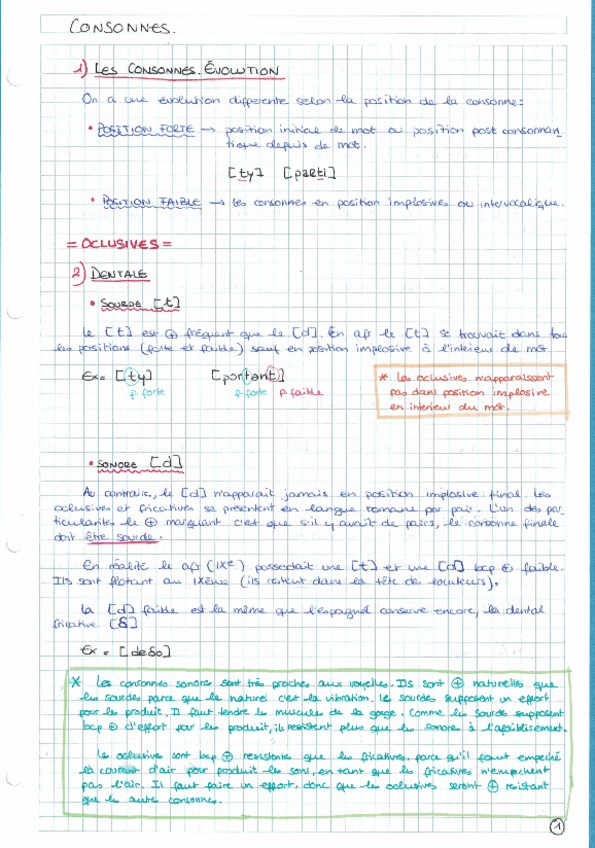 CONSONNES.
1) LES CONSONNES. ÉVOLUTION
On a une évolution differente selon la position de la consonne:
• POSITION FORTE → position initial de mot ou position post consonnan
tique depuis de mot.
[ty] [paRti]
• POSITION FAIBLE → les consonnes en position implosives ou intervocalique.
= OCLUSIVES =
2) DENTALE
• SOURDE [t]
Le [t] est ⊕ fréquent que le [d]. En afr le [t] se trouvait dans tous
les positions (forte et faible) sauf en position implosive à l'intérieur de mot
Ex= [ty] [portant]
p. forte p. forte p. faible
* Les oclusives n'apparaissent
pas dans position implosive
en interieur du mot.
• SONORE [d]
Au contraire, le [d] n'apparait jamais en position implosive final. Les
oclusives et fricatives se présentent en langue romane par pair. L'un des par
ticularités le ⊕ marquant c'est que s'il y avait de pairs, le consonne finale
doit être sourde.
En réalité le afr (IXe) possedait une [t] et une [d] bcp ⊕ faible.
Ils sont flotant au IXème (ils restent dans la tête de locuteurs).
La [d] faible est la même que l'espagnol conserve encore, la dental
fricative. [δ]
Ex = [deδo]
* Les consonnes sonore sont très proches aux voyelles. Ils sont ⊕ naturelles que
les sourdes parce que le naturel c'est la vibration. Le sourdes supposent un effort
pour les produit. Il faut tendre les muscules de la gorge. Comme les sourde supposent
bcp d'effort pour les produit, ils resistent plus que les sonore à l'afaiblicement.
Les oclusive sont bcp ⊕ resistente que les fricatives, parce qu'il faut empeché
la courant d'air pour produit les sons, en tant que les fricatives n'empechent
pas l'air. Il faut faire un effort, donc que les oclusives seront ⊕ resistant
que les autre consonnes.
1